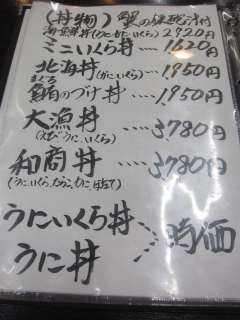 (丼物) 蟹の鉄砲汁付
海鮮丼(かにいくら) 2920円
ミニいくら丼 ‥‥ 1620円
北海丼(かにいくら) 1,950円
まぐろ
鮪のづけ丼 ‥‥ 1,950円
大漁丼 ‥‥ 3780円
(えび うに、いくら)
和商丼 ‥‥ 3780円
(うに、いくら、たらこ、かに、ほたて)
うにいくら丼
時価
うに丼